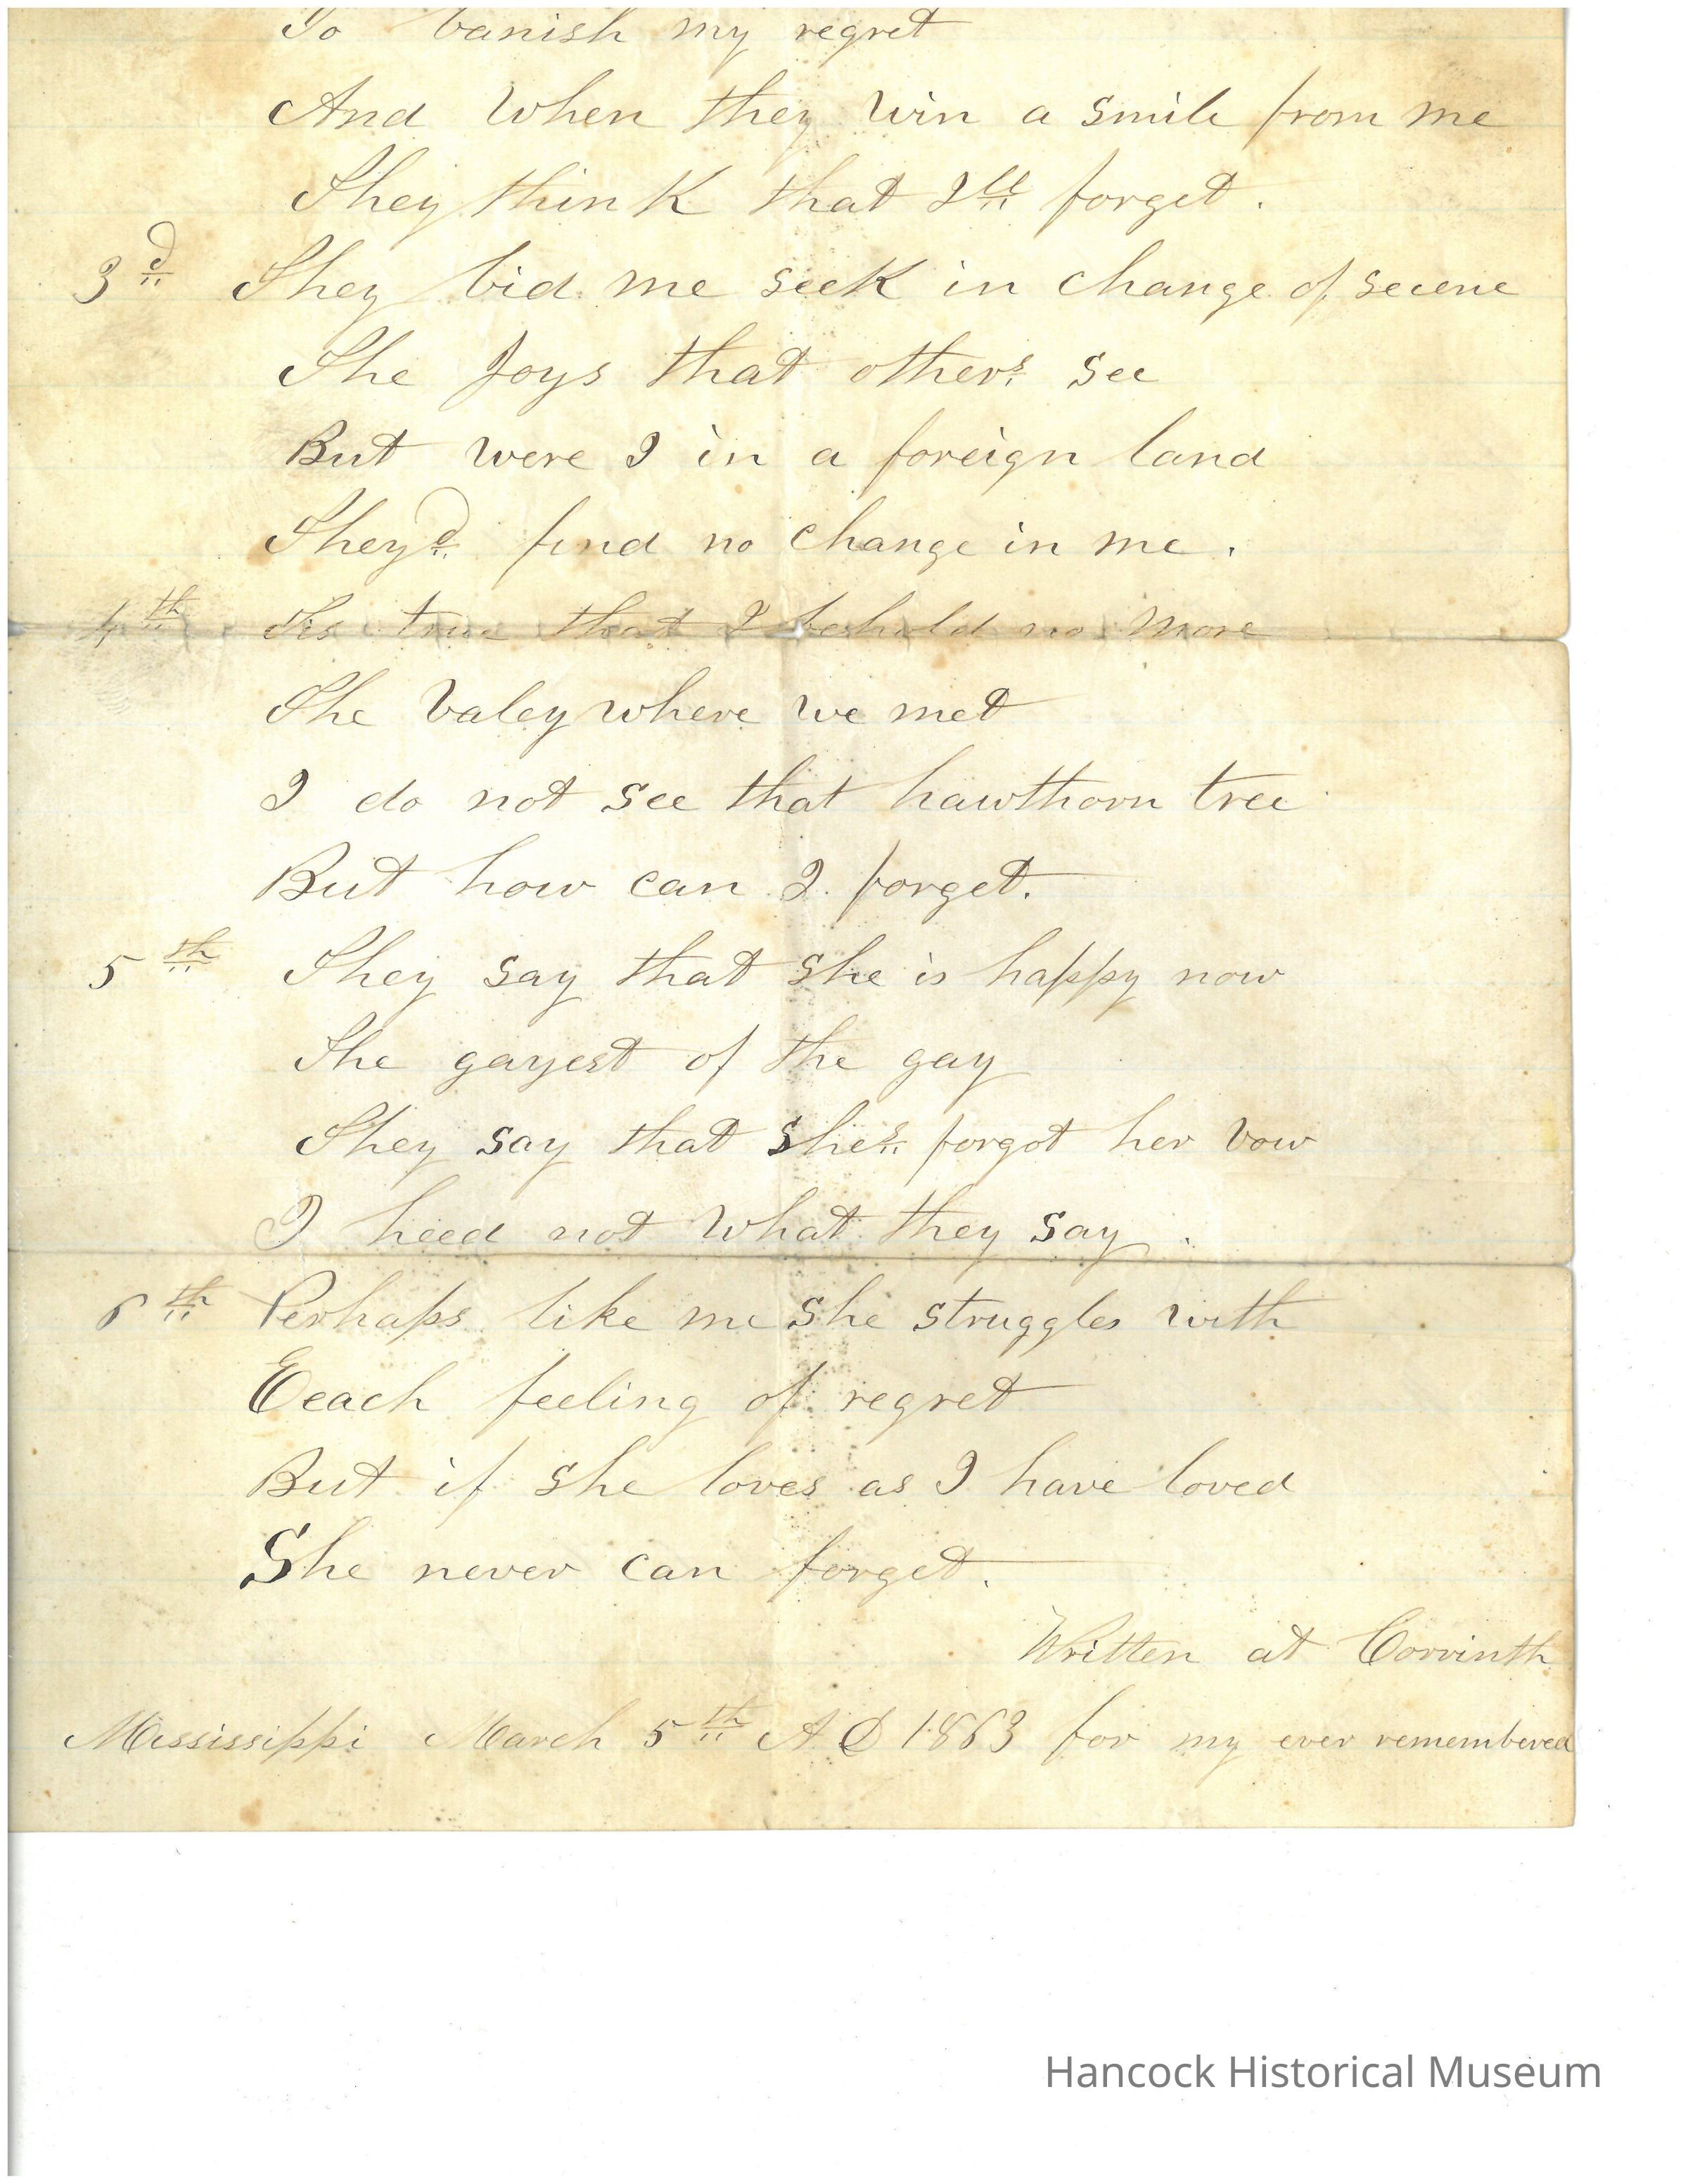 To banish my regret
And when they win a smile from me
They think that Ill forget.
3d They bid me seek in change of scene
The Joys that others see
But were I in a foreign land
Theyd find no change in me.
4th Tis true that I behold no more
The Valey where we met
I do not see that hawthorn tree
But how can I forget.
5th They say that she is happy now
The gayest of the gay
They say that shes forgot her vow
I heed not what they say.
6th Perhaps like me she struggles with
Eeach feeling of regret
But if she loves as I have loved
She never can forget.
Written at Corrinth
Mississippi March 5th A D 1863 for my ever remembered
Hancock Historical Museum